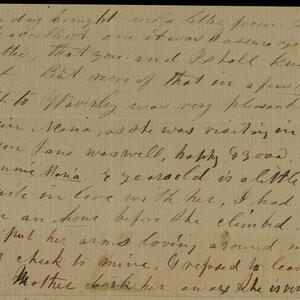 day brought me a letter from
excellent one it was I assure yo
that you and I shall
But more of that in a few
to Waverley was very pleasant
Maria, as she was visiting in
Jane was well, happy, & good.
nnie Maria, 2 years old is a little
quite in love with her, I had
an hour before she climbed
put her arms loving around m
cheek to mine, & refused to lea
Mother took her away She is ver